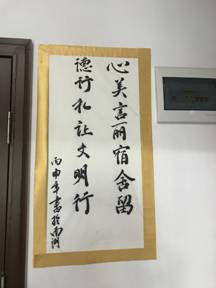 心美言丽宿舍留
德行礼让文明行
丙申年书于南湖